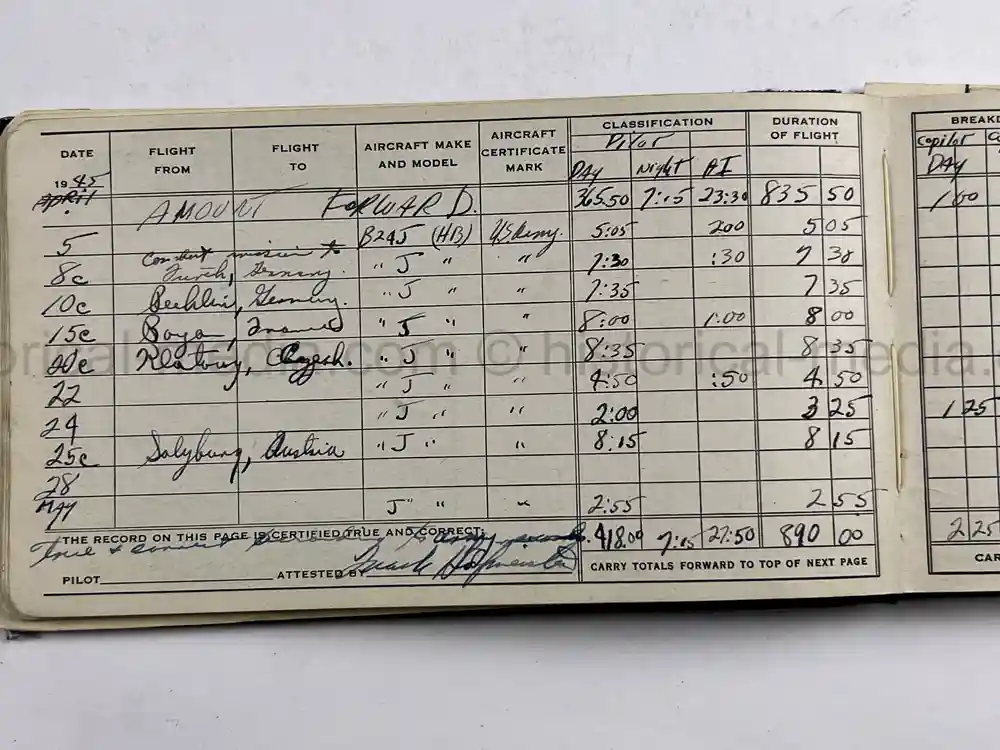 DATE FLIGHT FROM FLIGHT TO AIRCRAFT MAKE AND MODEL AIRCRAFT CERTIFICATE MARK CLASSIFICATION DURATION OF FLIGHT BREAKD
Pilot Copilot
1945 DAY Night AI DAY
April AMOUNT FORWARD. 365:50 7:15 23:30 835 50 1 00
5 B24J (HB) US Army. 5:05 200 5 05
8c Combat mission to Furth, Germany. " J " " 7:30 :30 7 30
10c Rechlin, Germany. " J " 7:35 7 35
15c Royan, France " J " " 8:00 1:00 8 00
20c Klatovy, Czech. " J " " 8:35 8 35
22 " J " " 4:50 :50 4 50
24 " J " " 2:00 3 25 1 25
25c Salzburg, Austria " J " " 8:15 8 15
28
May J " " " 2:55 2 55
THE RECORD ON THIS PAGE IS CERTIFIED TRUE AND CORRECT: 418:00 7:15 27:50 890 00 2 25
True & correct according to army records.
PILOT ATTESTED BY CARRY TOTALS FORWARD TO TOP OF NEXT PAGE CAR
historical-media.com © historical-media.